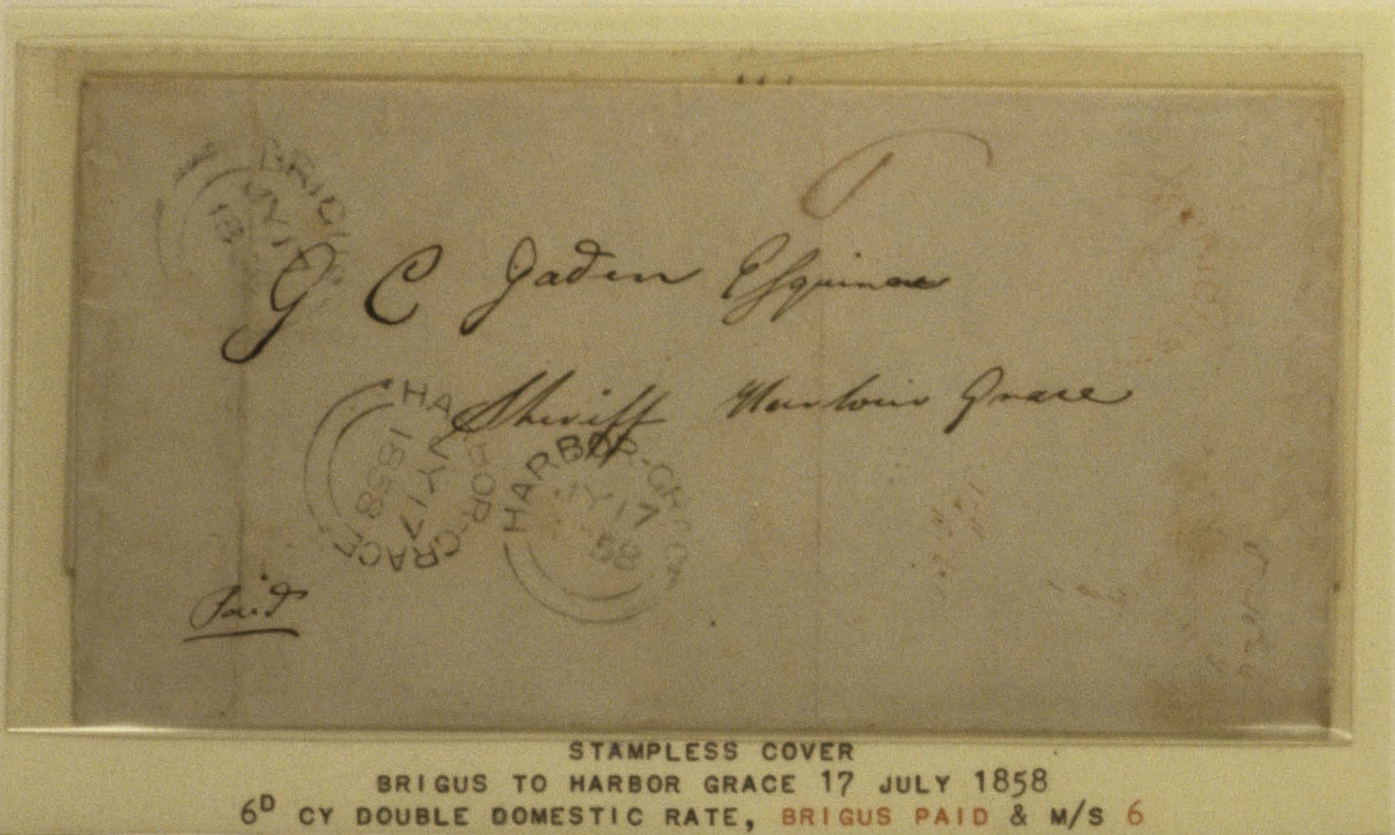 BRIG
JY 1
18
G C Jaden Esquire
Sheriff Harbour Grace
HARBOR-GRACE
JY 17
1858
HARBOR-GRACE
JY 17
58
Paid
STAMPLESS COVER
BRIGUS TO HARBOR GRACE 17 JULY 1858
6D CY DOUBLE DOMESTIC RATE, BRIGUS PAID & M/S 6